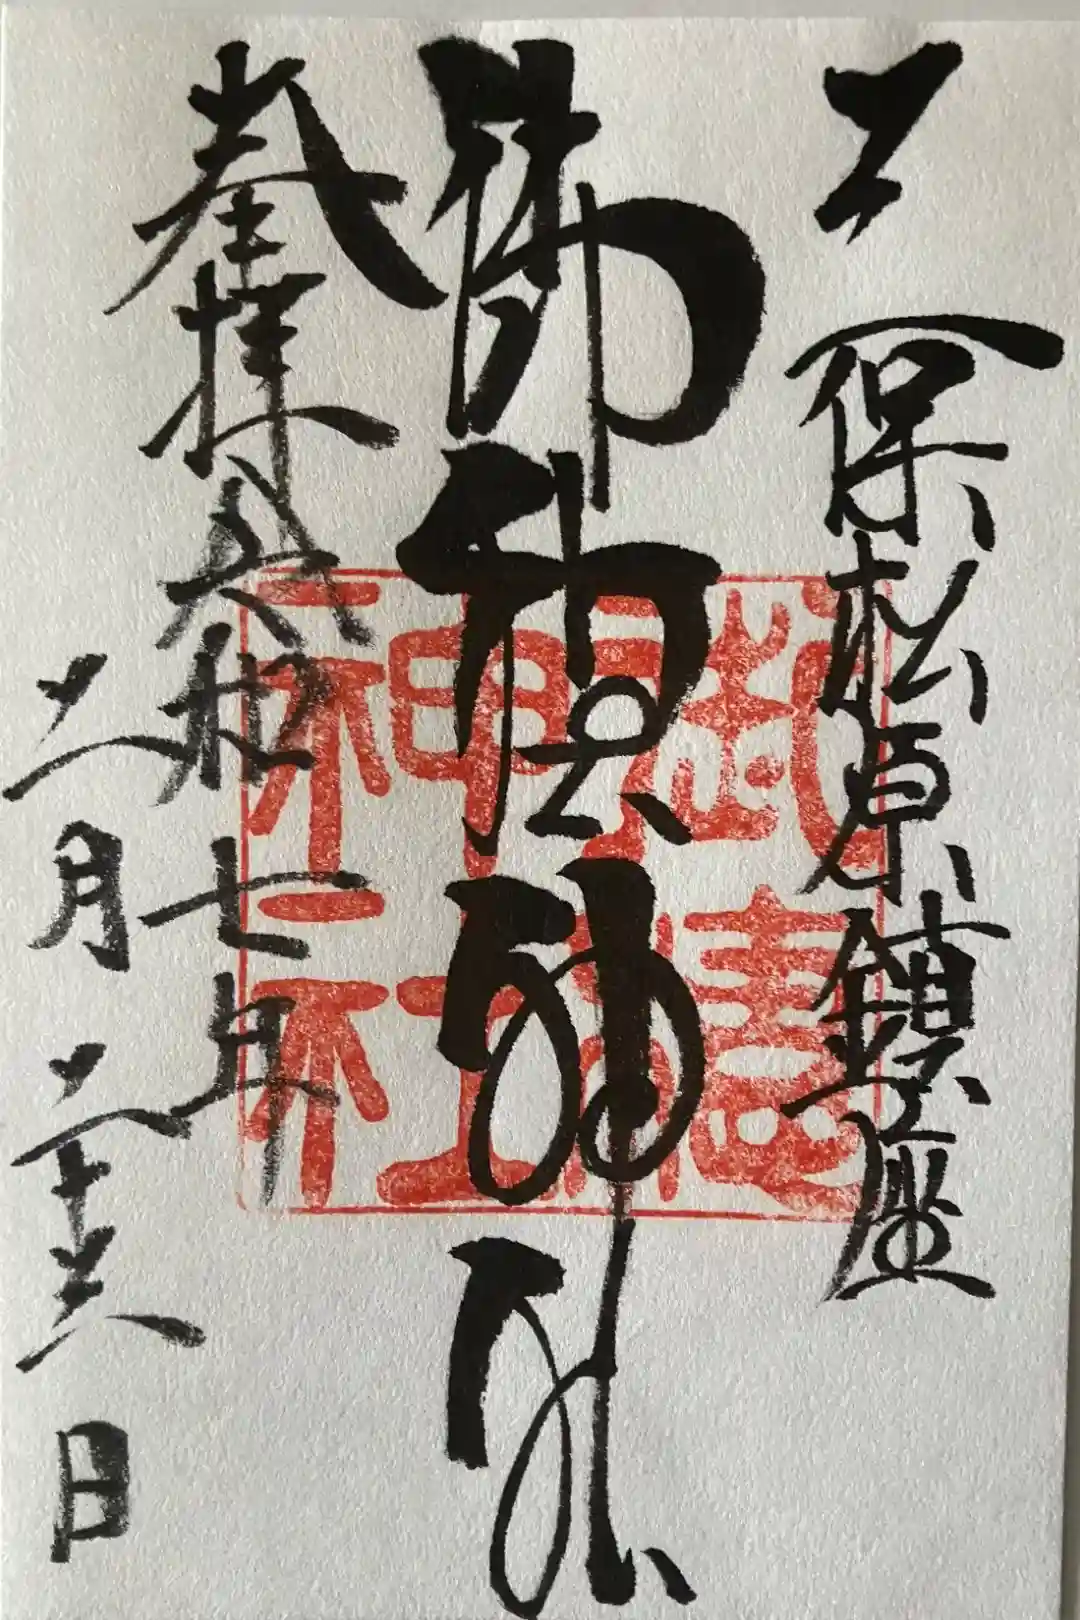 三保松原鎮座
御穂神社
奉拝 令和七年
二月二十六日